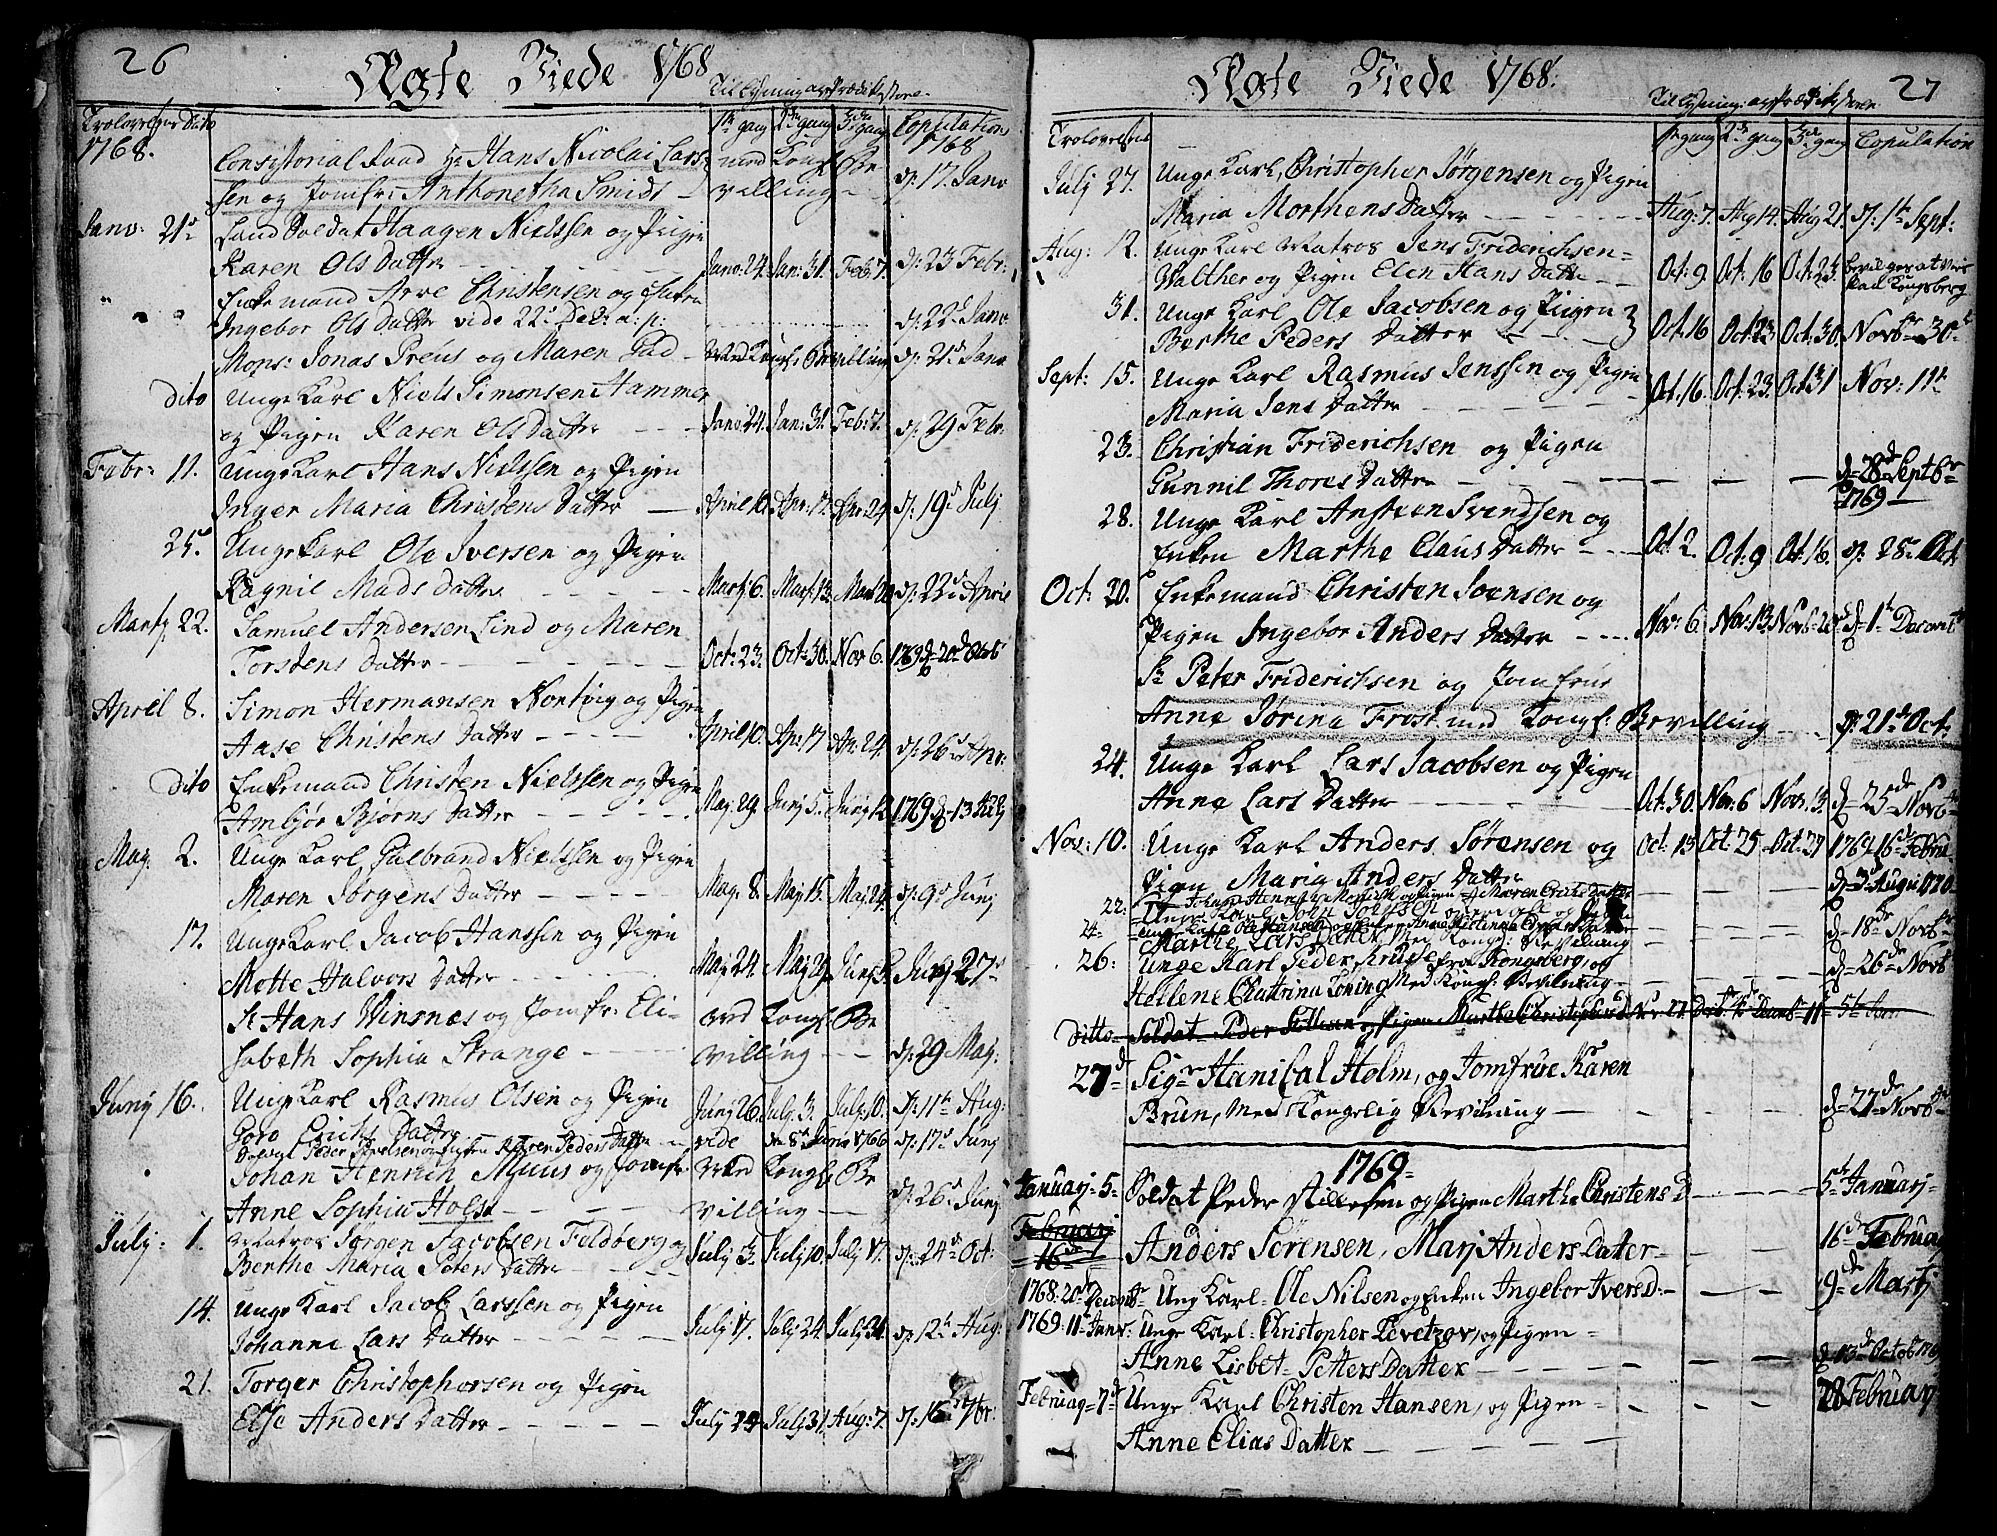 26
Ægte Viede 1768
Tillysning af Prædikestolen
Trolovelser Dito 1ste gang 2den gang 3die gang Copulation
1768. 1768
Consistorial Raad Hr Hans Nicolai Lars- med Kongl: Be
sen og Jomfr: Anthonetha Smidt villing d: 17. Janv
Janv: 21d Land Soldat Haagen Nielssen og Pigen
Karen Ols Datter Janv: 24. Jan: 31. Feb: 7. d: 23 Febr:
Enkemand Arve Christensen og Enken
Ingebor Ols Datter vide 22d Dec: a: p: d: 22d Janv
Mons: Jonas Preus og Maren Gad Med Kongl: Bevilling d: 21d Janv
Dito Unge Karl Niels Simonsen Hammer
og Pigen Karen Ols Datter Janv: 24. Jan: 31. Feb: 7. d: 29 Febr:
Febr: 11. Unge Karl Hans Nielssen og Pigen
Inger Maria Christens Datter April 10. Apr: 17. Apr: 24. d: 19d Julj
25d Unge Karl Ole Iversen og Pigen
Ragnil Mads Datter Martj 6. Mart: 13. Mart 20 d: 22d April
Martj 22. Samuel Andersen Lind og Maren
Torstens Datter Oct: 23. Oct: 30. Nov 6. 1769 d 20d
April 8. Simon Hermansen Nortvig og Pigen
Aase Christens Datter April 10. Ap: 17 Ap: 24. d: 26d Apr:
Dito Enkemand Christen Nielssen og Pigen
Ambjør Bjørns Datter Maj: 29. Junj 5. Junj 12. 1769 d 13 Julj
Maj: 2. Unge Karl Gulbrand Nielssen og Pigen
Maren Jørgens Datter Maj: 8. Maj 15. Maj: 24. d: 9d Junj
17. Unge Karl Jacob Hanssen og Pigen
Mette Halvors Datter Maj 24. Maj 29. Junj 5. Julj 27d
Sr Hans Winsnes og Jomfr: Eli- med Kongl: Be
sabeth Sophia Strange villing d: 29 Maj:
Junij 16. Unge Karl Rasmus Olsen og Pigen
Goro Erichs Datter Junj 26. Julj. 3. Julj: 10. d: 11te Aug:
Peder og Pigen Karen Peders Datter vide den 8d Janv 1766 d: 17d Junj
Johan Henrich Muus og Jomfr: Med Kongl: Be
Anne Sophia Holst villing d: 26d Junj
Julj: 1. Matros Jørgen Jacobsen Feldberg og
Berthe Maria Peters Datter Julj 3. Julj 10. Julj 17. d: 24d Oct:
14. Unge Karl Jacob Larssen og Pigen
Johanne Lars Datter Julj 17. Julj 24. Julj 31. d: 12te Aug:
21. Torger Christophersen og Pigen
Else Anders Datter Julj 24 Julj 31. Aug: 7. d: 16 7br:
Ægte Viede 1768. 27
Tillysning: af Prædikestolen
Trolovelser 1te gang 2den gang 3die gang Copulation
Julj 27. Unge Karl, Christopher Jørgensen og Pigen
Maria Morthens Datter Aug: 7. Aug 14. Aug 21. d: 1te Sept:
Aug: 12. Unge Karl Matros Jens Friderichsen
Walther og Pigen Elen Hans Datter Oct: 9 Oct: 16 Oct: 23. Kongsberg
31. Unge Karl Ole Jacobsen og Pigen
Berthe Peders Datter Oct: 16 Oct: 23. Oct: 30. Novbr 30te
Sept: 15. Unge Karl Rasmus Jenssen og Pigen
Maria Jens Datter Oct: 16. Oct: 23. Oct 31 Nov: 11te
23. Christian Friderichsen og Pigen
Gunnil Thores Datter d 28de Septbr
1769
28. Unge Karl Ansteen Svendsen og
Enken Marthe Claus Datter Oct: 2. Oct: 9 Oct: 16. d: 28 Oct
Oct: 20. Enkemand Christen Soensen og
Pigen Ingebor Anders Datter Nov: 6 Nov: 13 Novb: 20 d 1te Decemb
Sr Peter Friderichsen og Jomfrue
Anne Jorina Frost med Kongl: Bevilling d: 21d Oct:
24. Unge Karl Lars Jacobsen og Pigen
Anne Lars Datter Oct: 30. Nov: 6 Nov: 13. d 25de Novb
Nov: 10. Unge Karl Anders Sørensen og Oct. 13 Oct: 25 Oct: 27 1769 16d Febru
Pigen Maria Anders Datter
22: d 3 Augu 1770
24 d 18de Novbr
Marthe Lars Datter Med Kongl: Bevilning
26: Unge Karl Peder Kruse fra Kongsberg, og d 26de Novb
Hellene Chattrina Loning Med Kongl: Bevilning
Ditto Soldat Peder Stillesen og Pigen Marthe Christens D
27d Sigr Hanibal Holm, og Jomfrue Karen
Brun, Med Kongelig Bevilning d 27de Novb
1769
Januarj 5 Soldat Peder Stillesen og Pigen Marthe Christens D 5te Januarj
Februarj
16d Anders Sørensen, Marj Anders Dater 16de Februarj
1768: 20d Decemb Ung Karl Ole Nilsen og Enken Ingebor Ivers D: 9de Martj
1769: 11te Janv: Unge Karl Christopher Levetzov, og Pigen
Anne Lisbet Petters Datter d 13de Octob 1769
Februarj 7d Unge Karl Christen Hansen, og Pigen Februarj
Anne Elias Datter